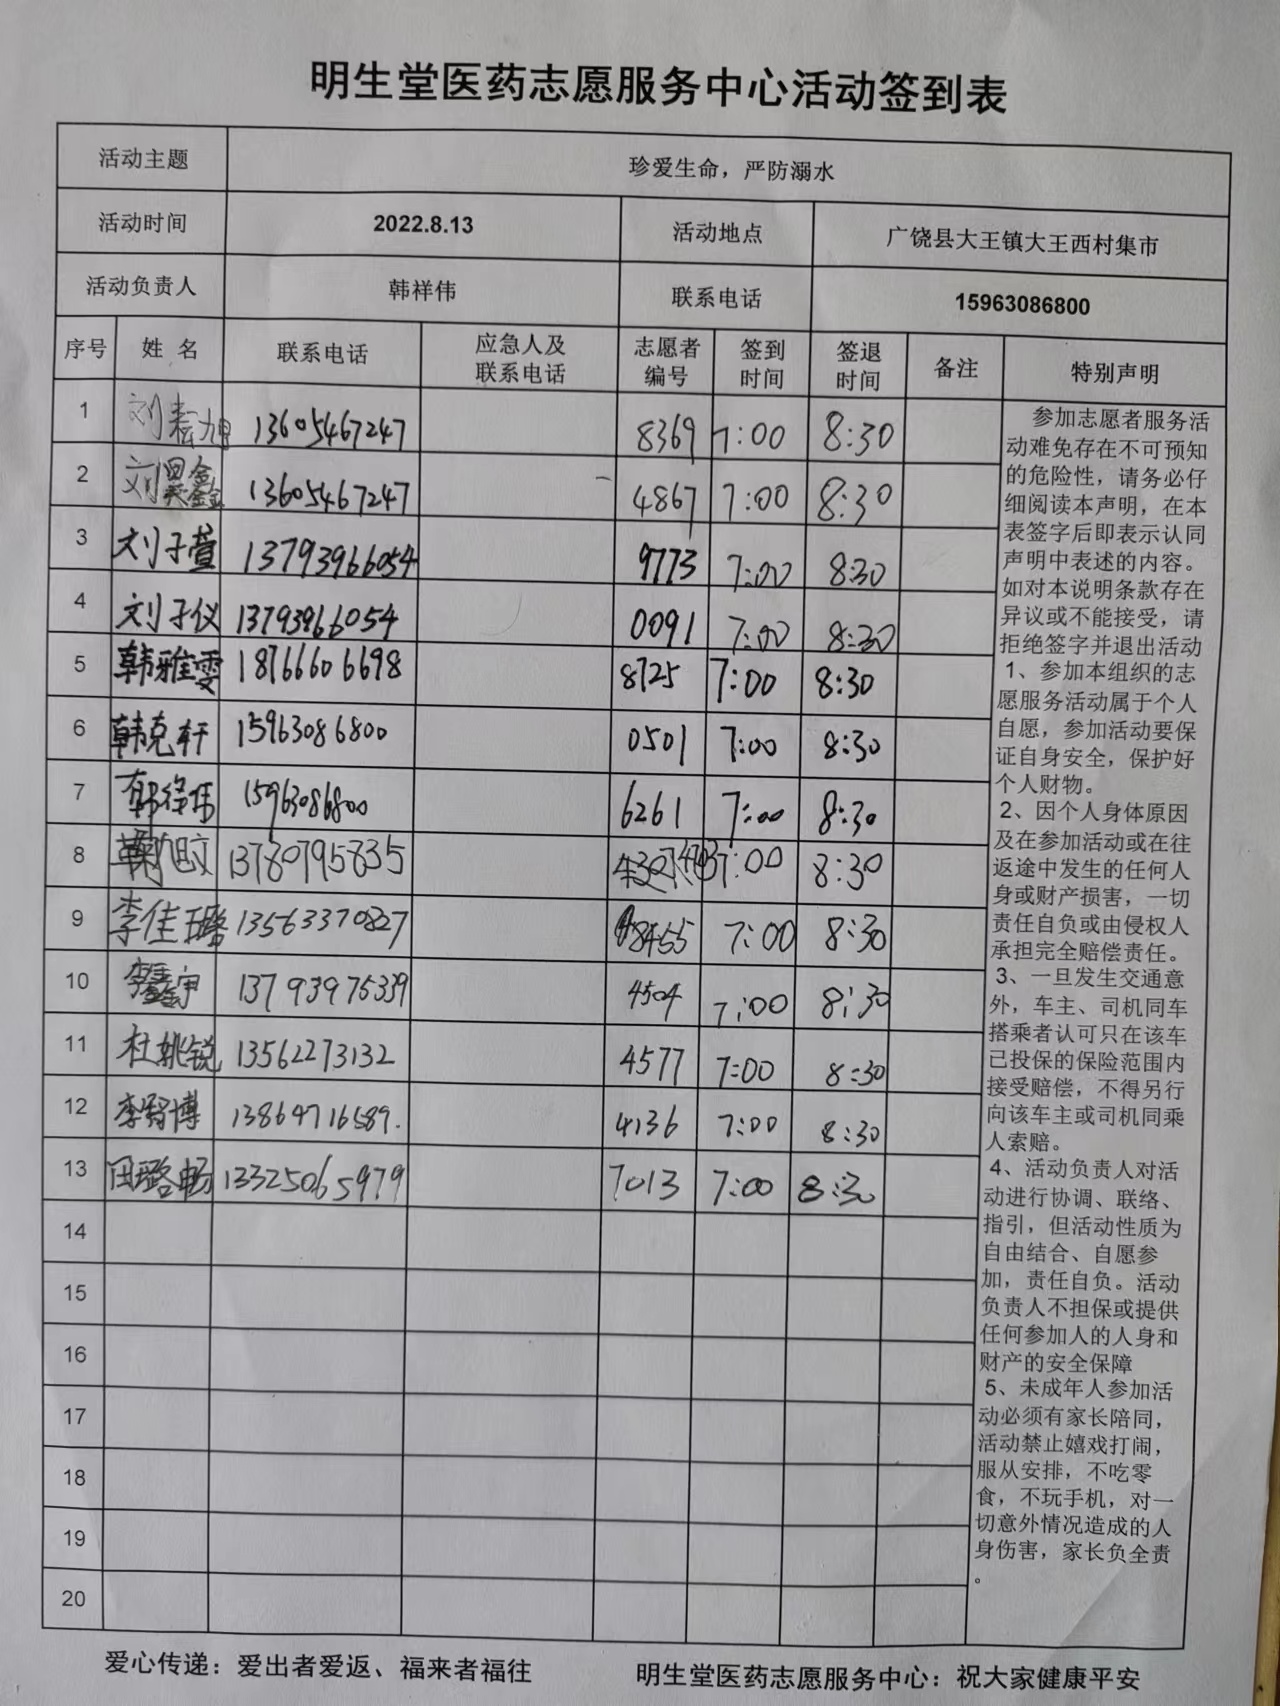 明生堂医药志愿服务中心活动签到表
活动主题 珍爱生命，严防溺水
活动时间 2022.8.13 活动地点 广饶县大王镇大王西村集市
活动负责人 韩祥伟 联系电话 15963086800
序号 姓名 联系电话 应急人及联系电话 志愿者编号 签到时间 签退时间 备注 特别声明
1 刘耘旭 13605467247 8369 7:00 8:30
2 刘昊鑫 13605467247 4867 7:00 8:30
3 刘子萱 13793966054 9773 7:00 8:30
4 刘子仪 13793966054 0091 7:00 8:30
5 韩雅雯 18766606698 8725 7:00 8:30
6 韩克轩 15963086800 0501 7:00 8:30
7 韩祥伟 15963086800 6261 7:00 8:30
8 13780795835 7:00 8:30
9 李佳璐 13563370827 8455 7:00 8:30
10 李鑫宇 13793975339 4504 7:00 8:30
11 杜姚锐 13562273132 4577 7:00 8:30
12 李智博 13864716589. 4136 7:00 8:30
13 田璐畅 13325065979 7013 7:00 8:30
14
15
16
17
18
19
20
参加志愿者服务活
动难免存在不可预知
的危险性，请务必仔
细阅读本声明，在本
表签字后即表示认同
声明中表述的内容。
如对本说明条款存在
异议或不能接受，请
拒绝签字并退出活动
1、参加本组织的志
愿服务活动属于个人
自愿，参加活动要保
证自身安全，保护好
个人财物。
2、因个人身体原因
及在参加活动或在往
返途中发生的任何人
身或财产损害，一切
责任自负或由侵权人
承担完全赔偿责任。
3、一旦发生交通意
外，车主、司机同车
搭乘者认可只在该车
已投保的保险范围内
接受赔偿，不得另行
向该车主或司机同乘
人索赔。
4、活动负责人对活
动进行协调、联络、
指引，但活动性质为
自由结合、自愿参
加，责任自负。活动
负责人不担保或提供
任何参加人的人身和
财产的安全保障
5、未成年人参加活
动必须有家长陪同，
活动禁止嬉戏打闹，
服从安排，不吃零
食，不玩手机，对一
切意外情况造成的人
身伤害，家长负全责
。
爱心传递：爱出者爱返、福来者福往 明生堂医药志愿服务中心：祝大家健康平安